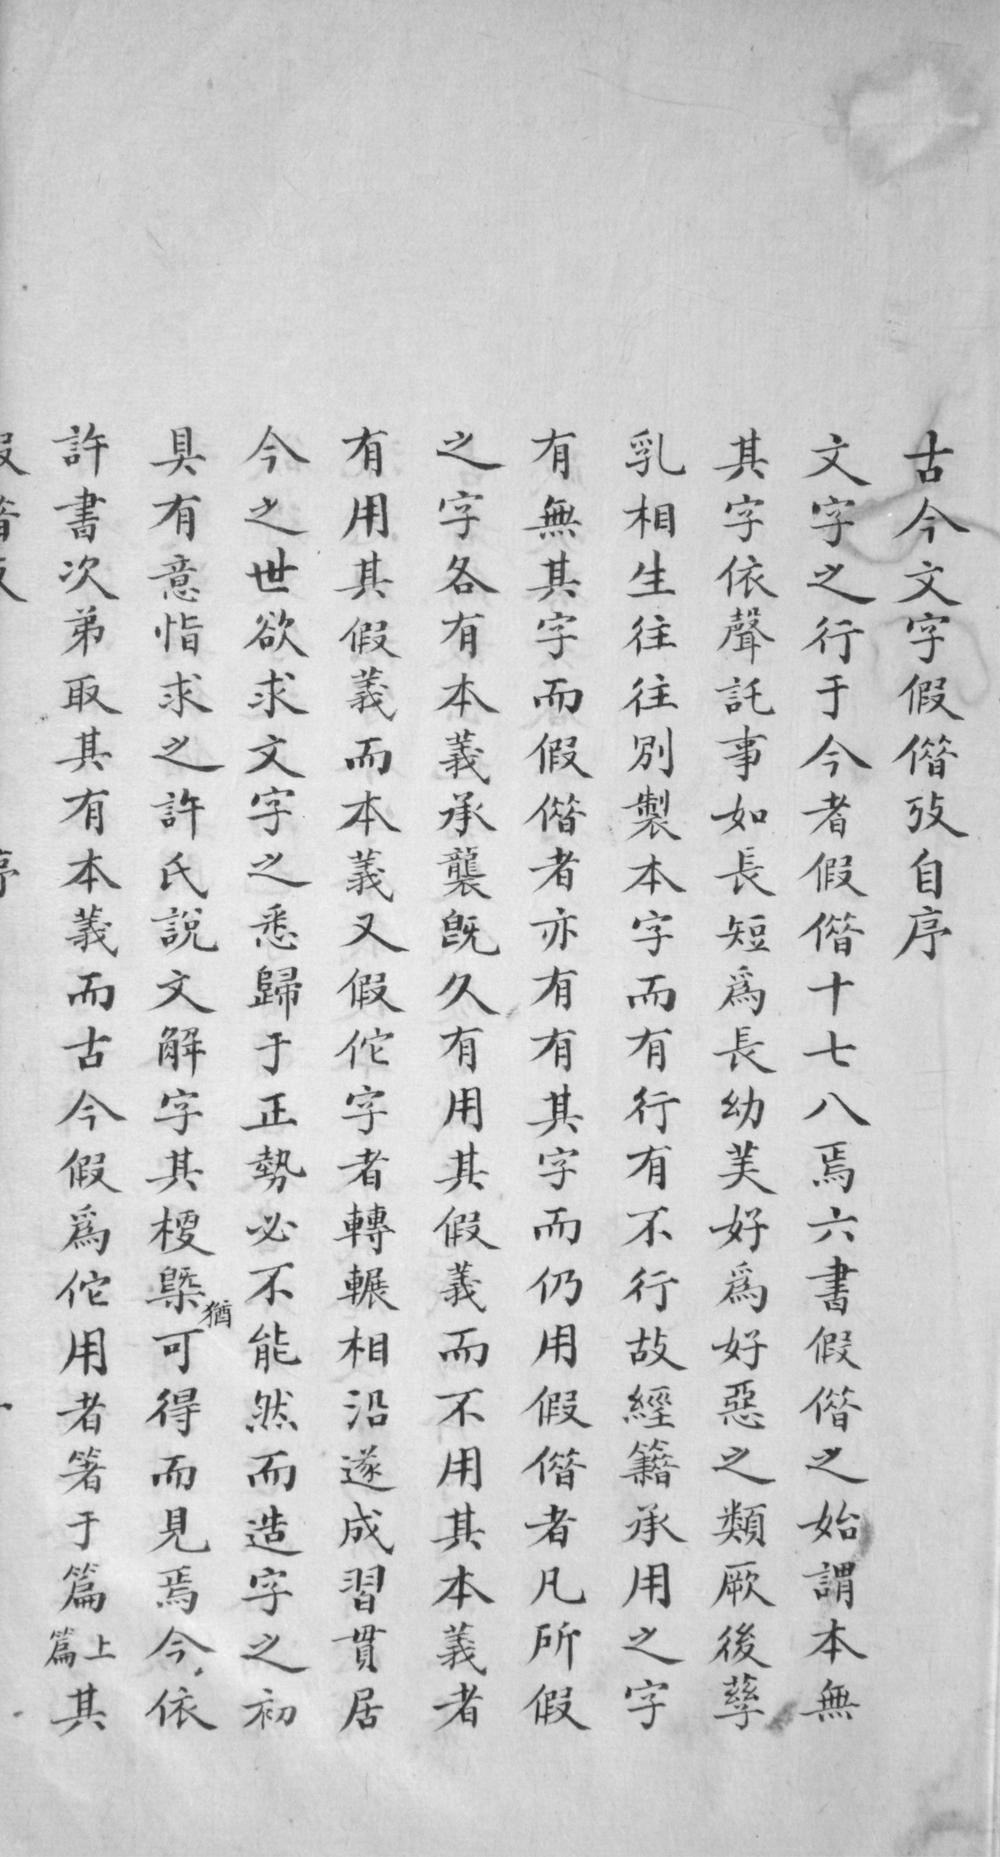 古今文字假僭攷自序
文字之行于今者假僭十七八焉六書假僭之始謂本無
其字依聲託事如長短爲長幼美好爲好惡之類厥後孳
乳相生往往別製本字而有行有不行故經籍承用之字
有無其字而假僭者亦有有其字而仍用假僭者凡所假
之字各有本義承襲既久有用其假義而不用其本義者
有用其假義而本義又假佗字者轉輾相沿遂成習貫居
今之世欲求文字之悉歸于正勢必不能然而造字之初
具有意恉求之許氏說文解字其梗槩猶可得而見焉今依
許書次弟取其有本義而古今假爲佗用者箸于篇上篇其